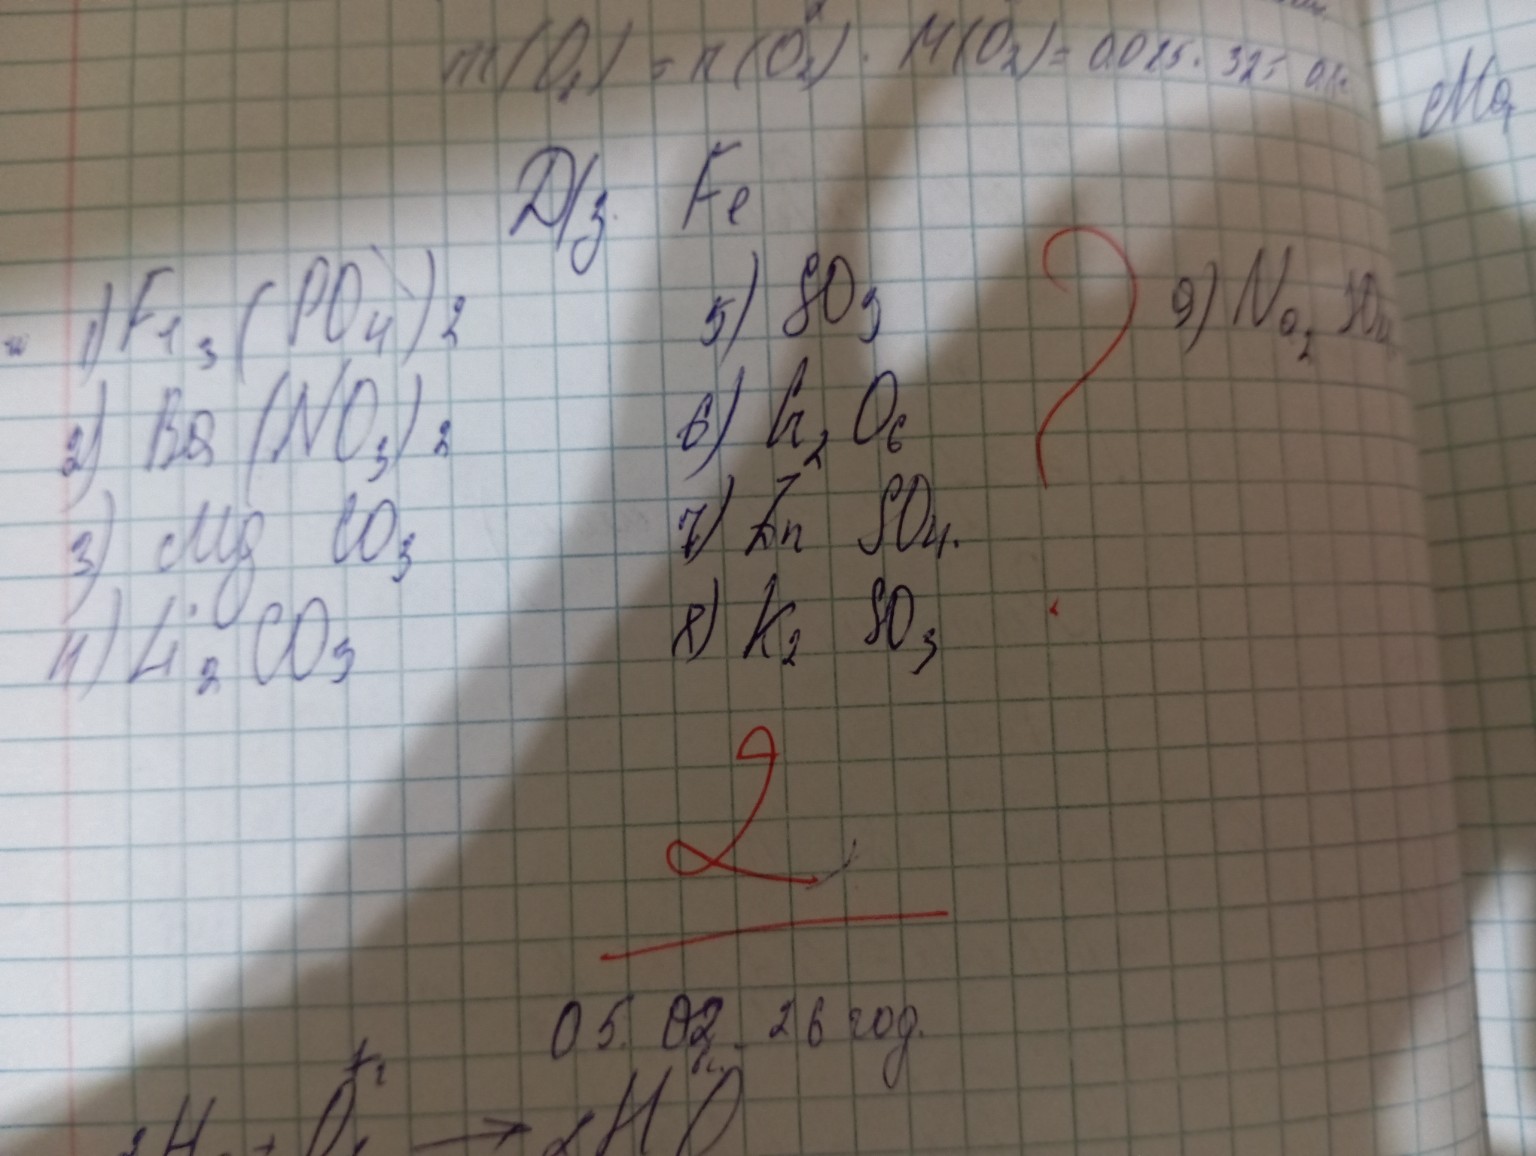 m(O2) = n(O2) · M(O2) = 0.025 · 32 =
Д/з. Fe
1) Fe3(PO4)2
2) Ba(NO3)2
3) Mg CO3
4) Li2CO3
5) SO3
6) Cr2O6
7) Zn SO4.
8) K2 SO3
9) Na2 SO4
?
2
05. 02. 26 год.